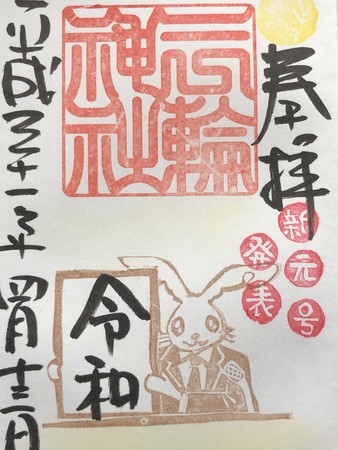 奉拝
三輪
神社
新元号
発表
令和
平成三十一年四月